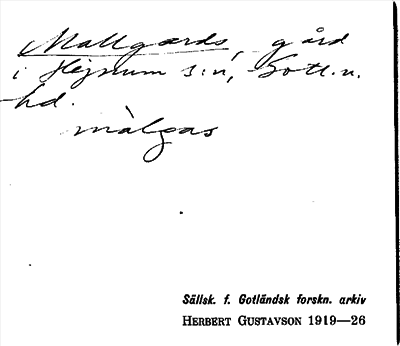 Mallgårds, gård
i Hejnum s:n, Gotl. n.
hd.
màlgas
Sällsk. f. Gotländsk forskn. arkiv
HERBERT GUSTAVSON 1919—26